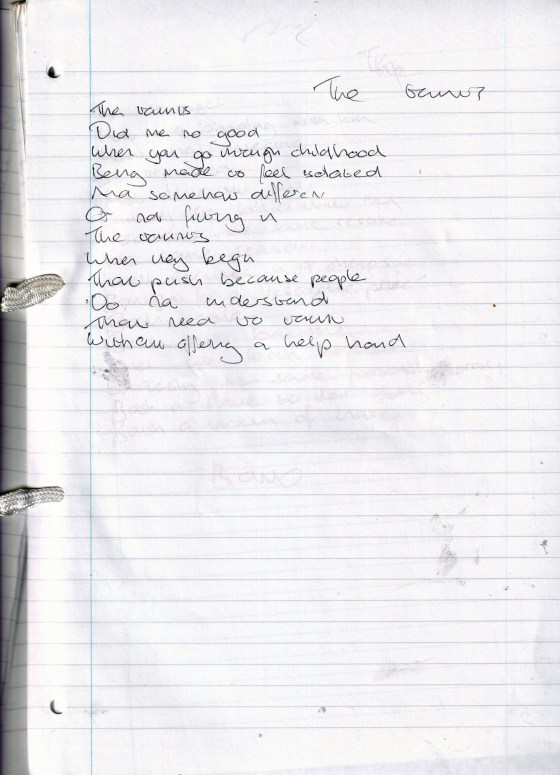 The taunts
The taunts
Did me no good
When you go through childhood
Being made to feel isolated
And somehow different
Or not fitting in
The taunts
When they begin
That push because people
Do not understand
Their need to taunt
Without offering a help hand